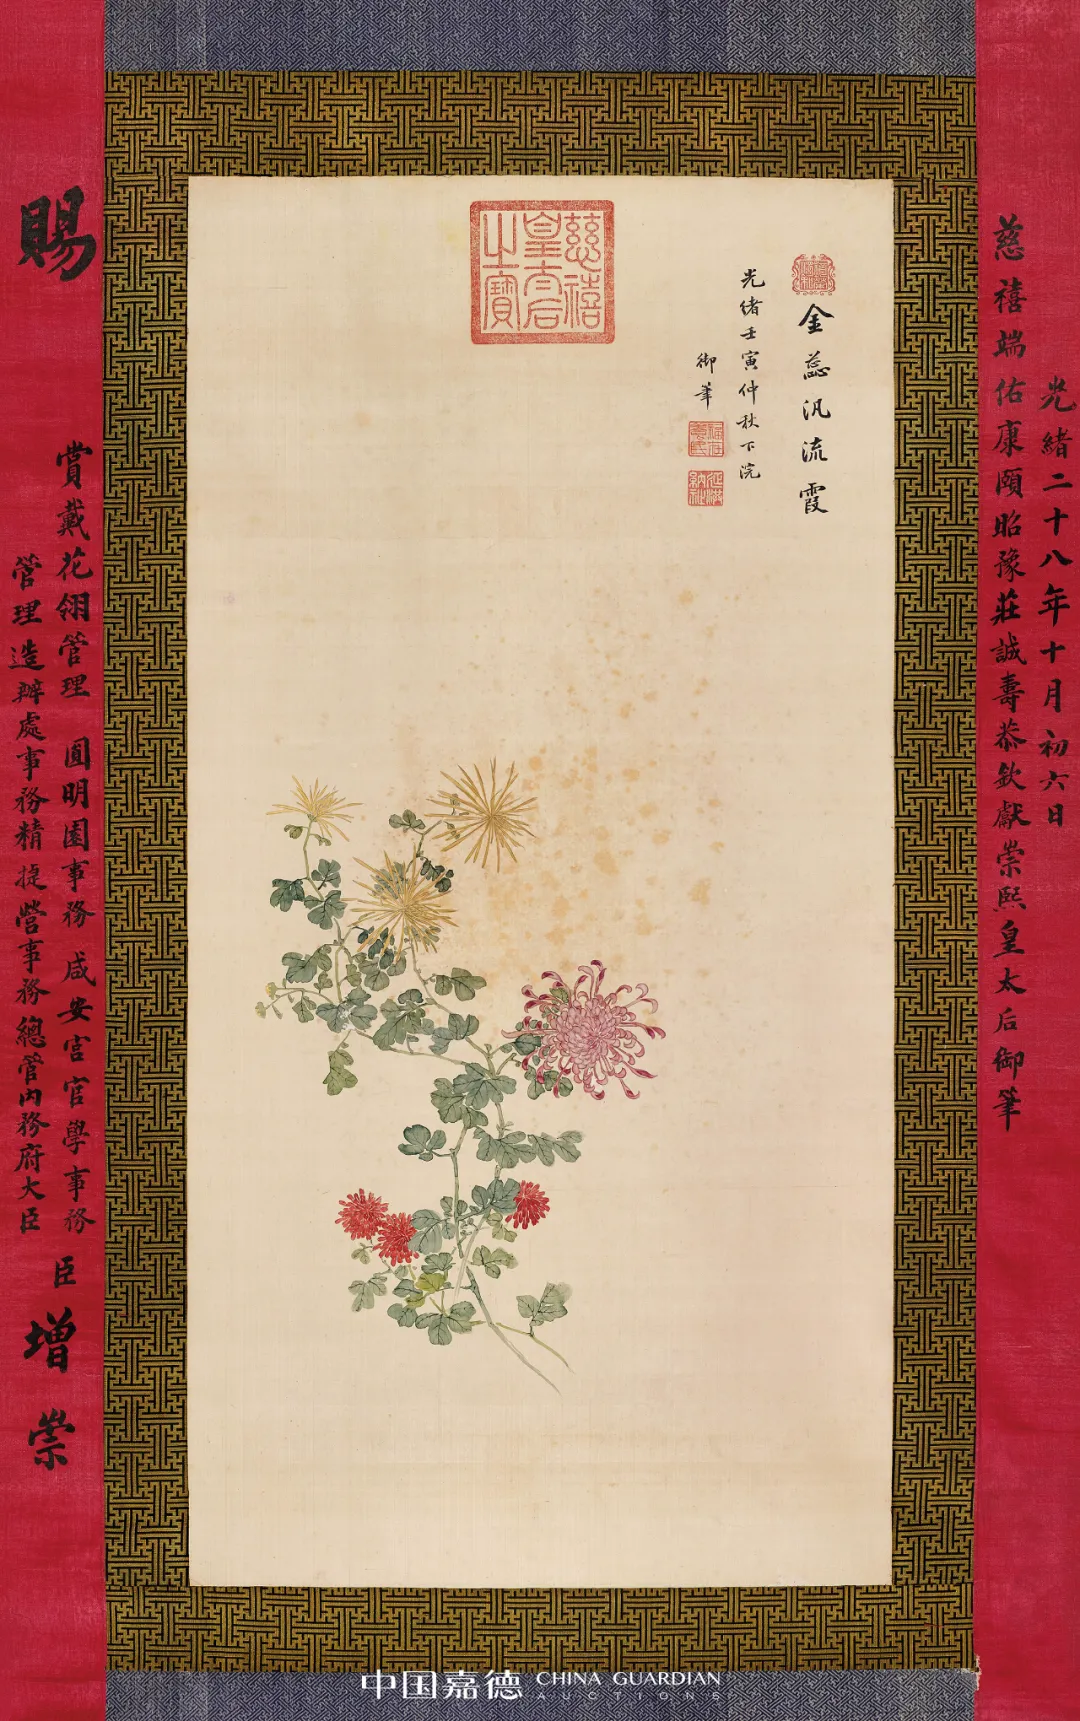 光緒二十八年十月初六日
慈禧端佑康頤昭豫莊誠壽恭欽獻崇熙皇太后御筆
金蕊汎流霞
光緒壬寅仲秋下浣
御筆
慈禧皇太后之寶
賜
賞戴花翎管理 圓明園事務 咸安宮官學事務
管理造辦處事務精捷營事務總管內務府大臣
臣 增崇
中国嘉德 CHINA GUARDIAN
AUCTIONS